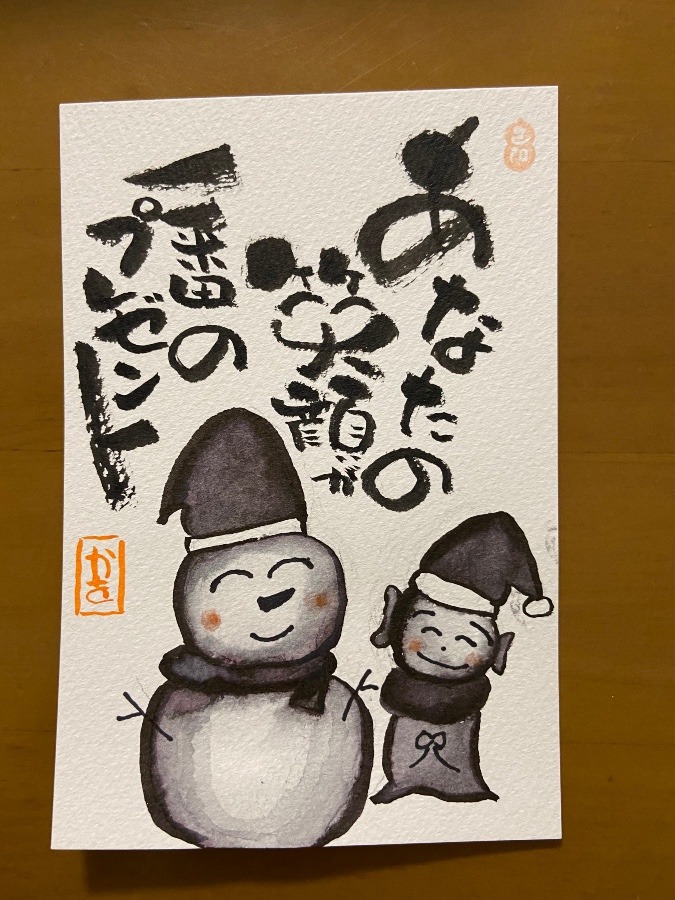 あなたの
笑顔が
一番の
プレゼント
かき